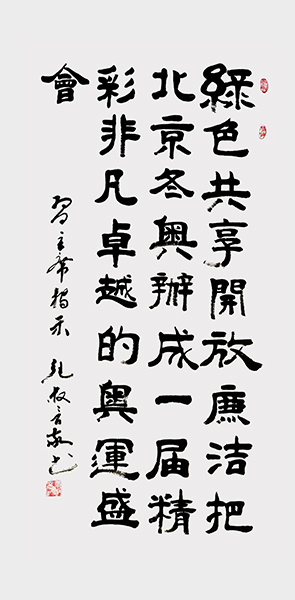 綠色共享開放廉洁把
北京冬奥辦成一届精
彩非凡卓越的奥運盛
會
习主席指示